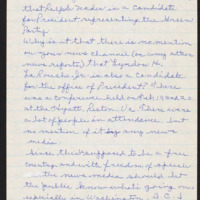 that Ralph Nader is a Candidate
for President representing the Green
Party.
Why is it that there is no mention
on your news channel (or any other
news reports) that Lyndon H.
LaRouche, Jr. is also a Candidate
for the office of President? There
was a conference held on Feb, 19 and 20
at the Hyatt, Reston Va. There were
a lot of people in attendance but
no mention of it by any news
media.
Since this is supposed to be a free
country and with freedom of speech
the news media should let
the public know what's going on
especially in Washington, D.C.